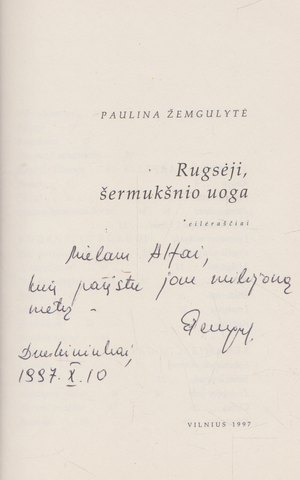 PAULINA ŽEMGULYTĖ
Rugsėji,
šermukšnio uoga
eilėraščiai
Mielam Alfai,
kurį pažįstu jau milijoną
metų –
Druskininkai,
1997. X. 10
VILNIUS 1997